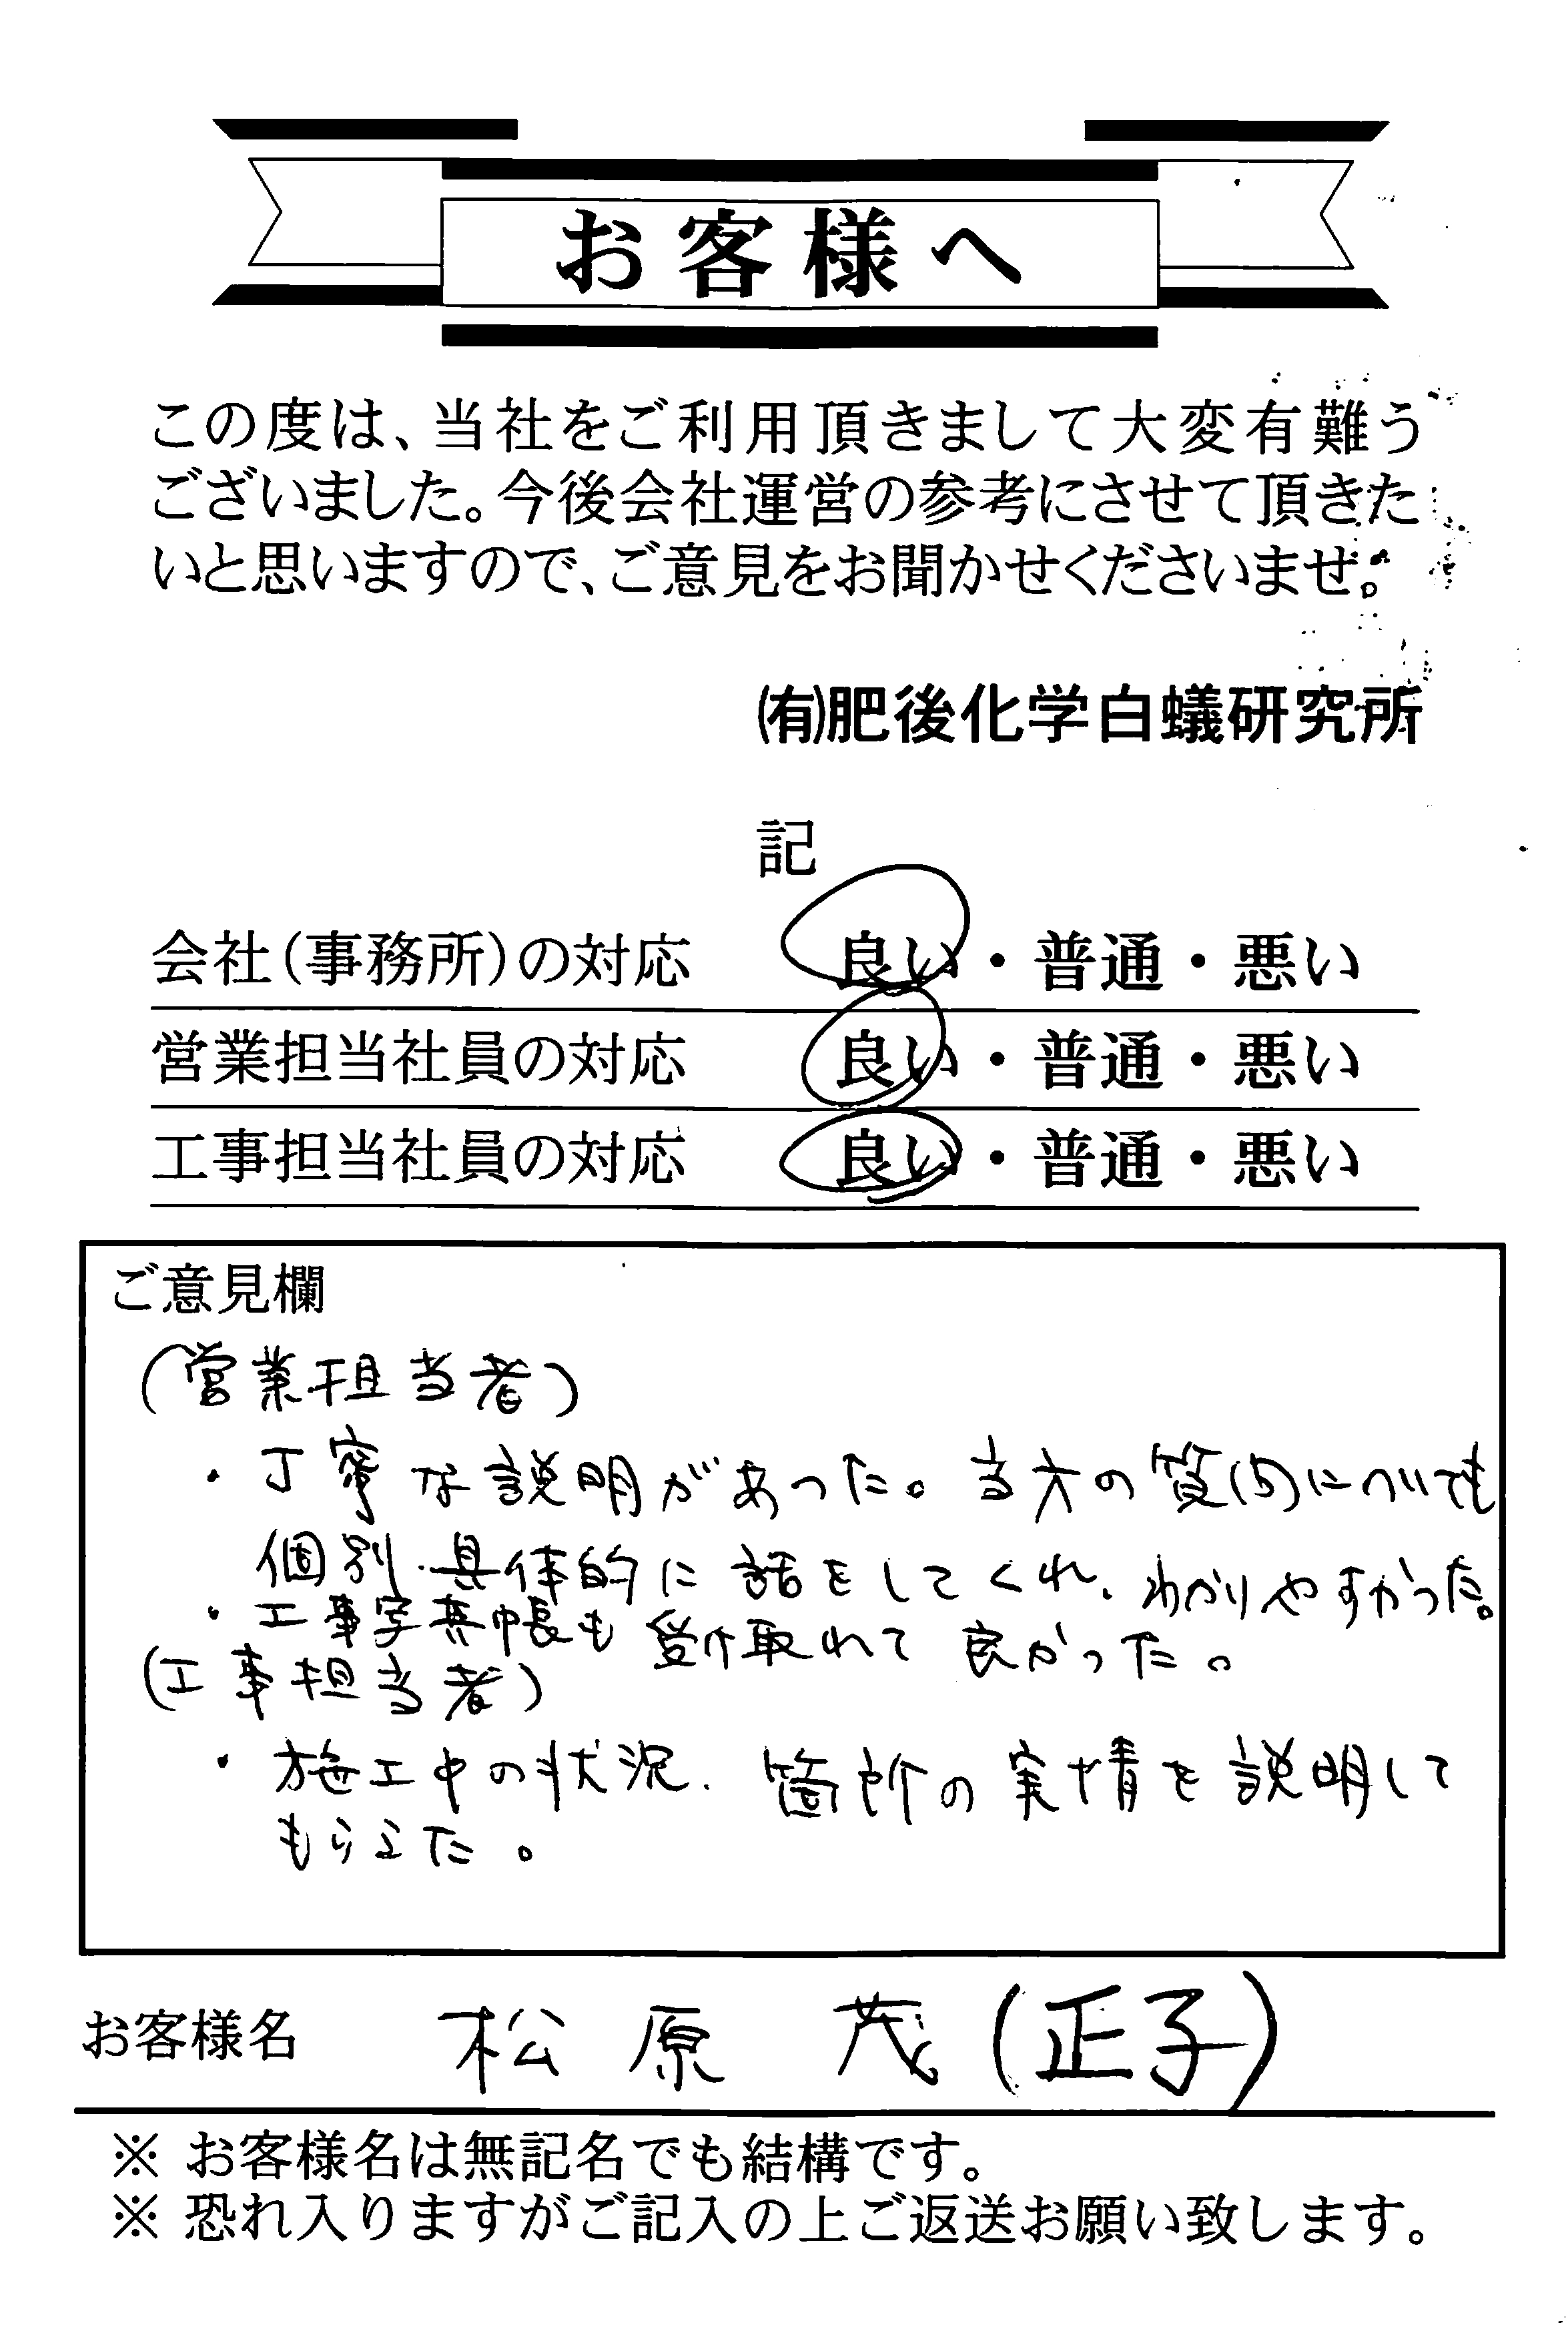 お客様へ
この度は、当社をご利用頂きまして大変有難う
ございました。今後会社運営の参考にさせて頂きた
いと思いますので、ご意見をお聞かせくださいませ。
㈲肥後化学白蟻研究所
記
会社(事務所)の対応 良い・普通・悪い
営業担当社員の対応 良い・普通・悪い
工事担当社員の対応 良い・普通・悪い
ご意見欄
(営業担当者)
・丁寧な説明があった。当方の質問についても
個別・具体的に話をしてくれ、わかりやすかった。
・工事写真帳も受け取れて良かった。
(工事担当者)
・施工中の状況、箇所の実情を説明して
もらえた。
お客様名 松原 茂(正子)
※ お客様名は無記名でも結構です。
※ 恐れ入りますがご記入の上ご返送お願い致します。